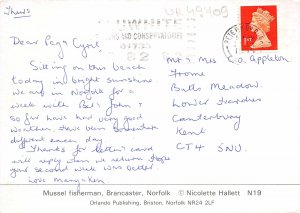 Thurs
UK49109
Dear Peg & Cyril
Sitting on this beach
today in bright sunshine
we are in Norfolk for a
week with Bet & John &
so far have had very good
weather. Have been somewhere
different each day
Thanks for letter card
will reply when we return. Hope
your second week was better
Love
AND CONSERVATORIES
1ST
Mr & Mrs Appleton
Frome
Batts Meadow
Lower
Canterbury
Kent
CT4 5NU.
Mussel fisherman, Brancaster, Norfolk © Nicolette Hallett N19
Orlando Publishing, Briston, Norfolk NR24 2LF